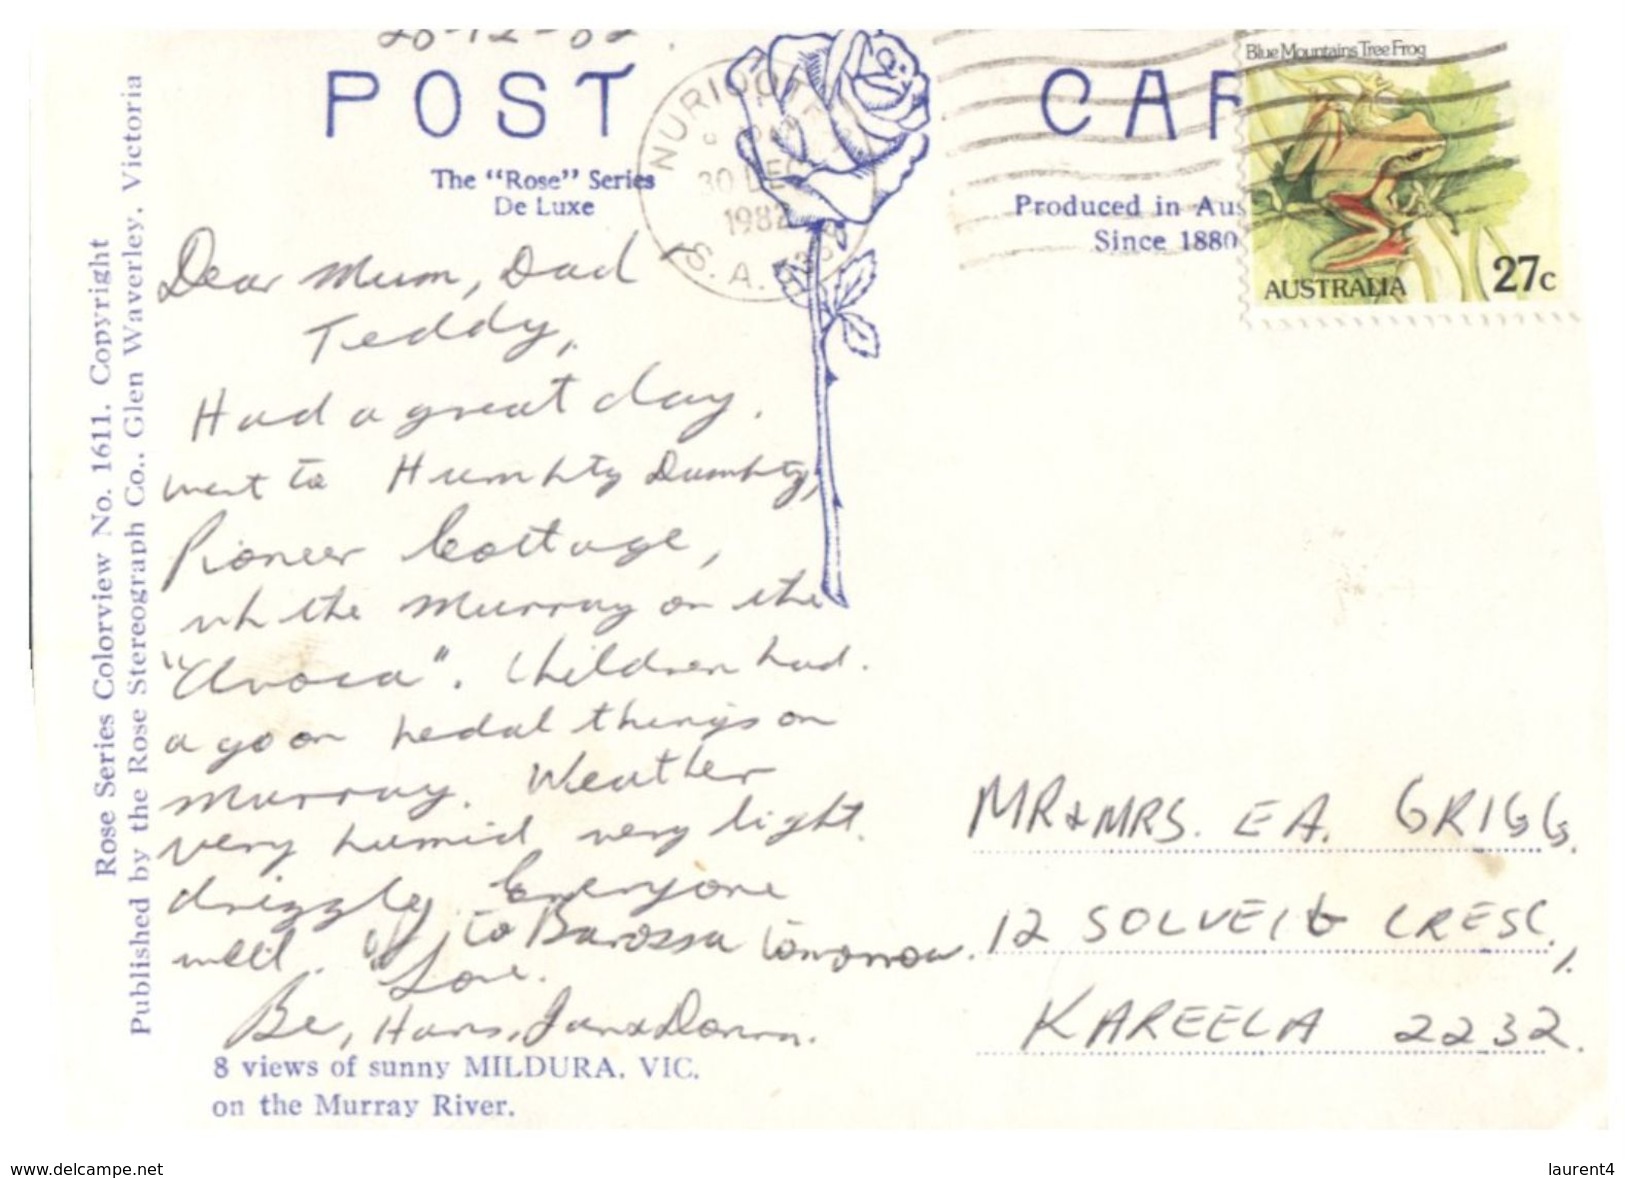 POST CAR
The "Rose" Series
De Luxe
Produced in Aus
Since 1880
NURIOO
30 DEC
1982
S. A.
Blue Mountains Tree Frog
AUSTRALIA 27c
Rose Series Colorview No. 1611. Copyright
Published by the Rose Stereograph Co., Glen Waverley, Victoria
Dear Mum, Dad
Teddy,
Had a great day.
went to Humpty Dumpty,
Pioneer Cottage,
up the Murray on the
"Avoca". Children had
a go on pedal things on
Murray. Weather
very humid very light
drizzly. Everyone
well. Off to Barossa tomorrow.
Love.
Be, Hans, Jan & Donna.
MR & MRS. E A. GRIGG,
12 SOLVEIG CRESC.,
KAREELA 2232.
8 views of sunny MILDURA, VIC.
on the Murray River.
www.delcampe.net
laurent4